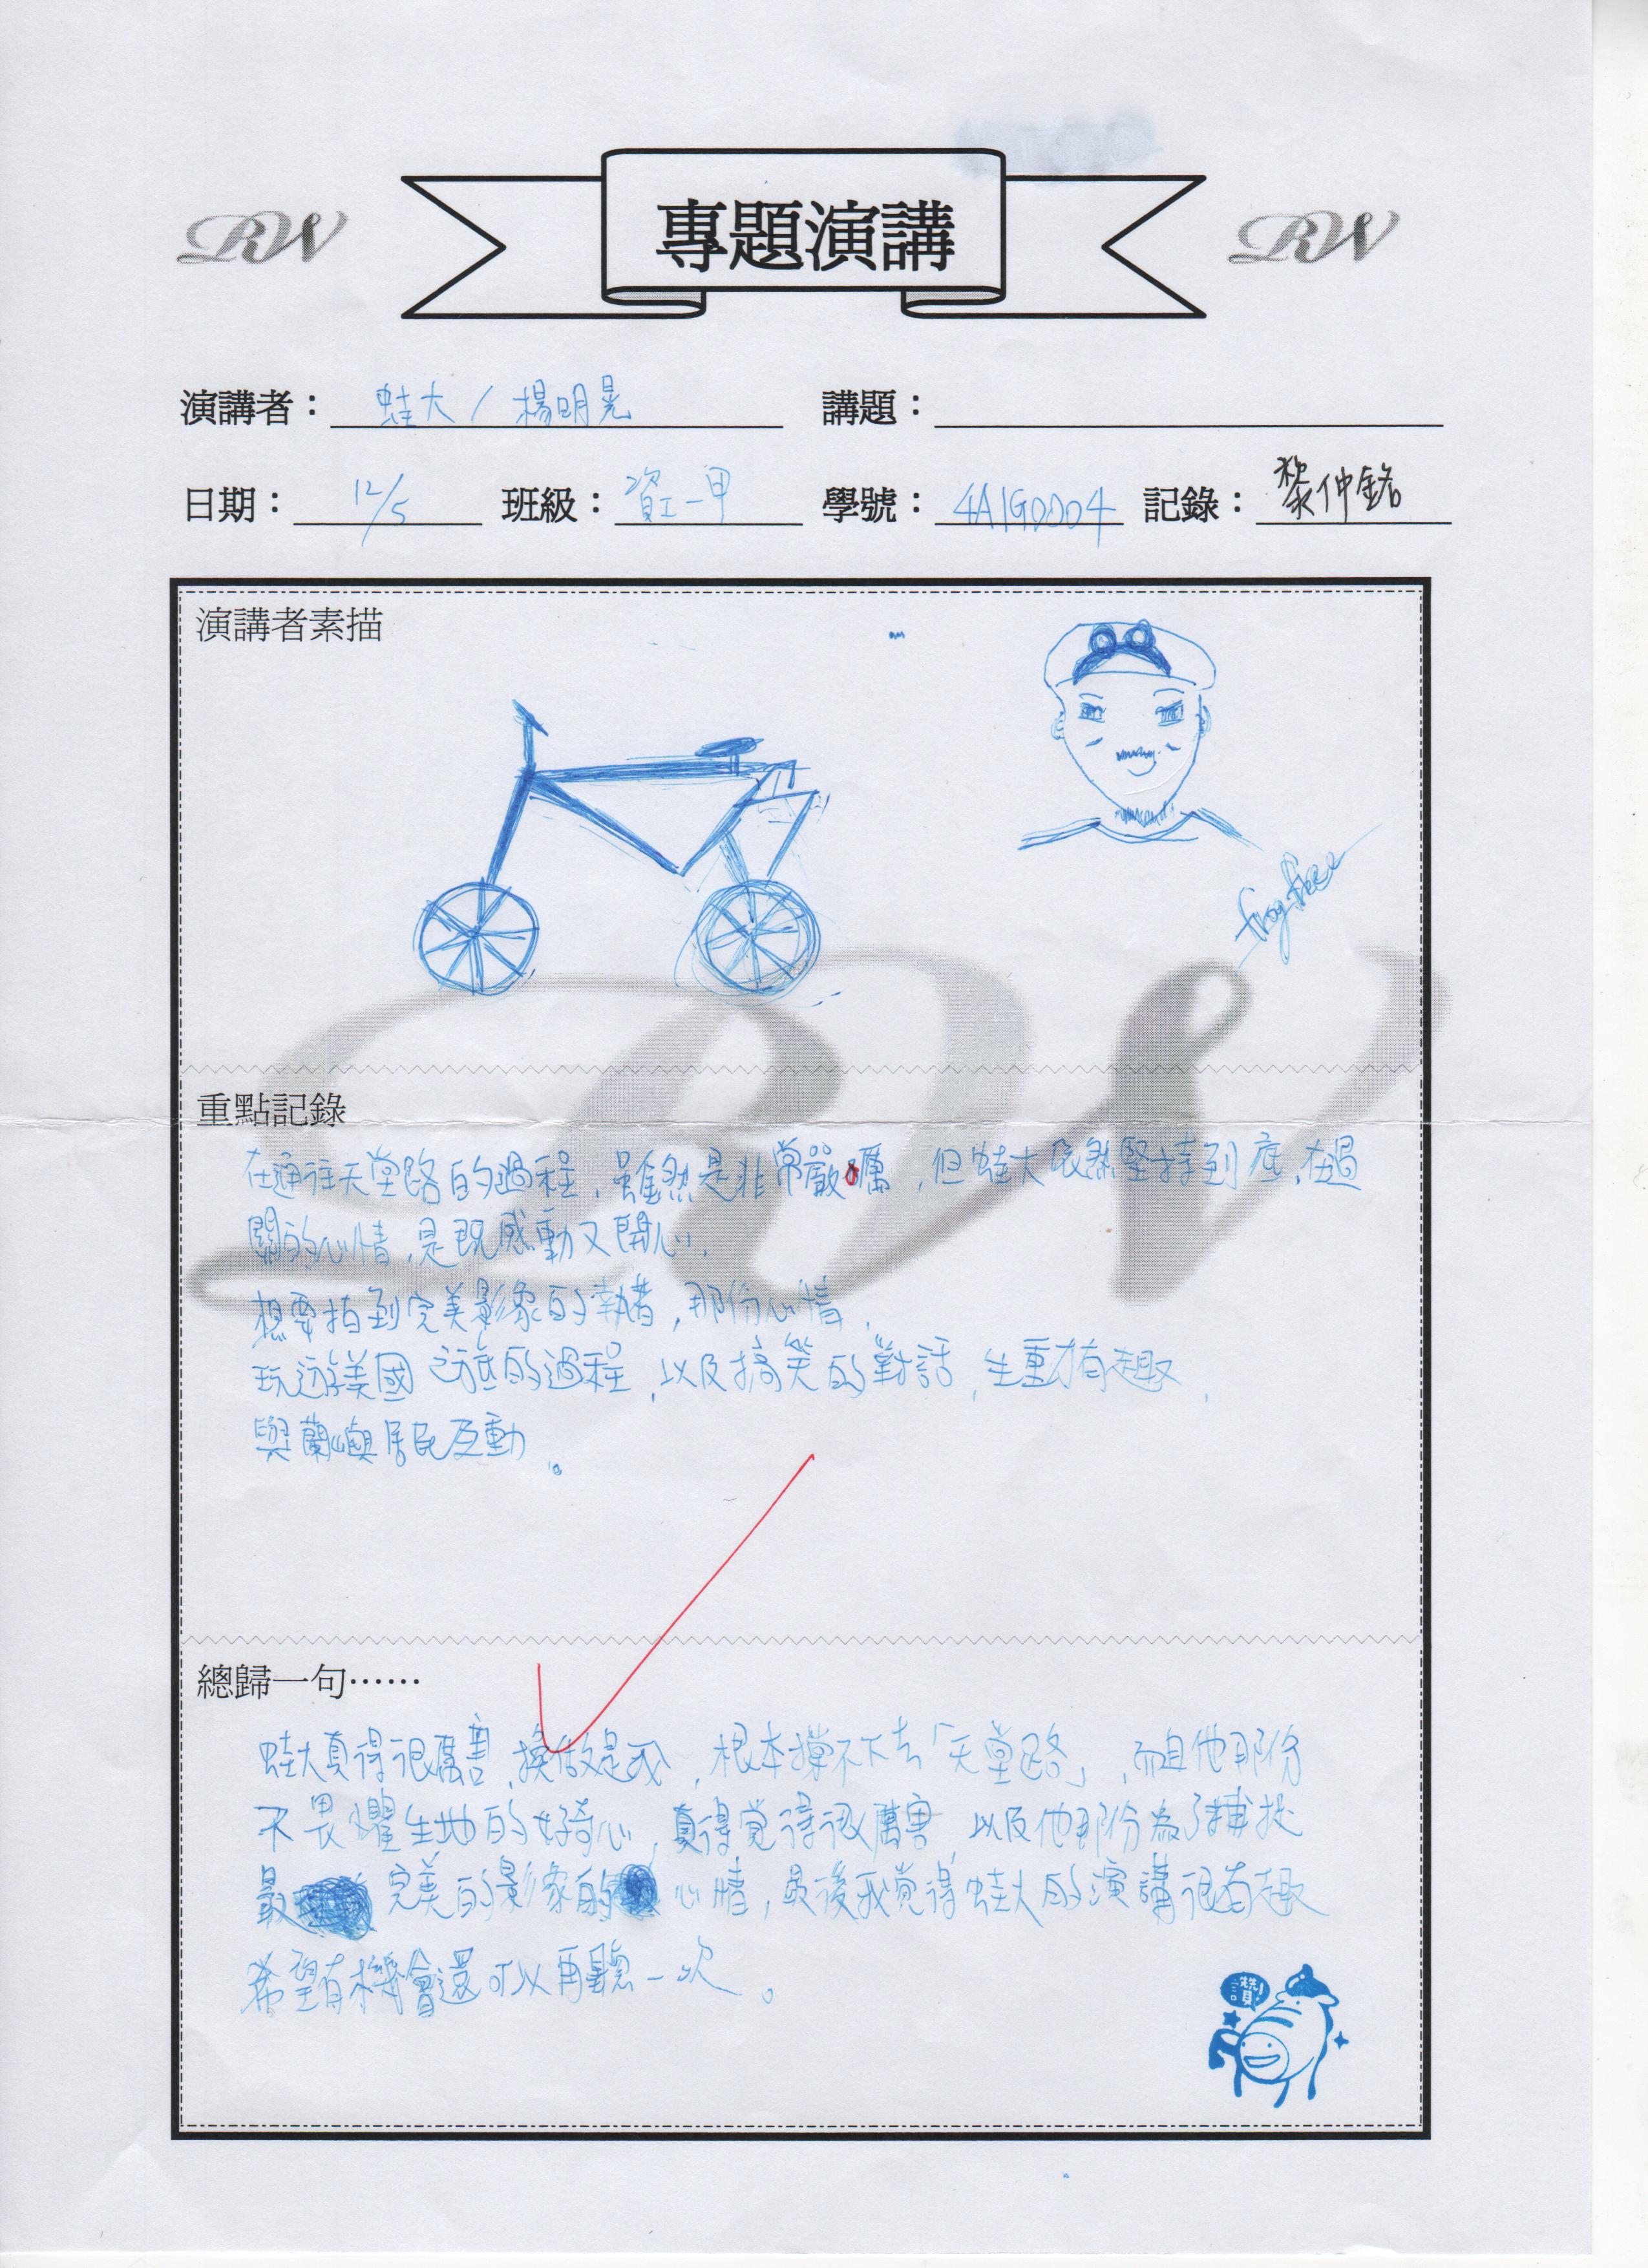 專題演講
RW
RW
演講者：蛙大/楊明晃 講題：
日期：12/5 班級：資工一甲 學號：4A1G0004 記錄：黎仲銘
演講者素描
frog free
重點記錄
在通往天堂路的過程，雖然是非常嚴嚝，但蛙大依然堅持到底，在過
關的心情，是既感動又開心，
想要拍到完美影像的執著，那份心情，
玩遊美國 的過程，以及搞笑的對話，生動有趣，
與蘭嶼居民互動。
總歸一句……
蛙大真得很厲害，換做是我，根本撐不下去「天堂路」，而且他那份
不畏懼生地的好奇心，真得覺得很厲害，以及他那份為了捕捉
最完美的影像的心情，最後我覺得蛙大的演講很有趣
希望有機會還可以再聽一次。
讚!